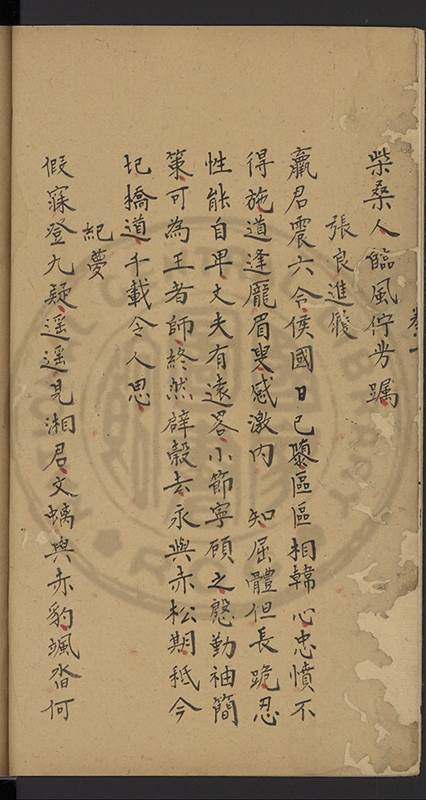 柴桑人臨風佇芳躅
張良進履
羸君震六令侯國日已隳區區相韓心忠憤不
得施道逢龐眉叟感激內 知屈體但長跪忍
性能自卑丈夫有遠畧小節寧顧之慇勤袖簡
策可為王者師終然辟穀去永與赤松期秪今
圯橋道千載令人思
紀夢
假寐登九疑遥遥見湘君文螭與赤豹颯沓何